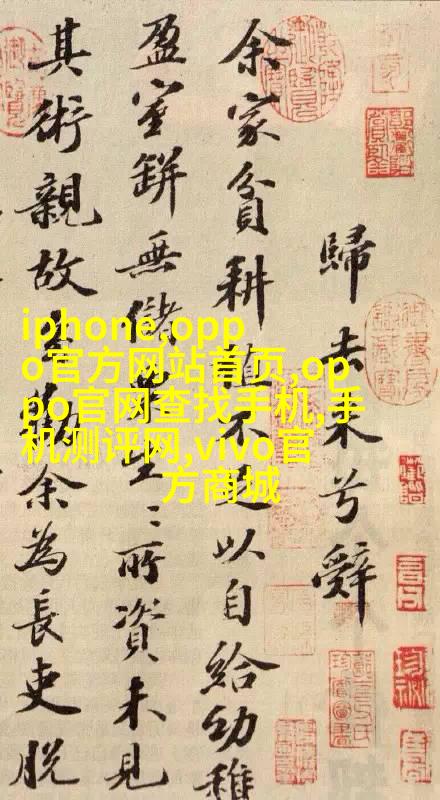 歸去来兮辭
余家貧耕植不足以自給幼稚
盈室缾無儲粟生〻所資未見
其術親故多勸余為長吏脫
iphone,opp
o官方网站首页,op
po官网查找手机,手
机测评网,vivo官
方商城